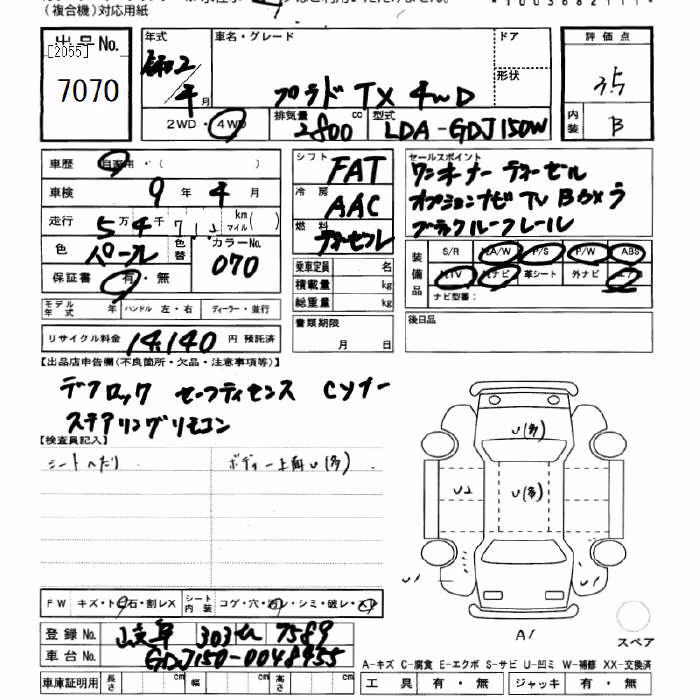 (複合機)対応用紙
出品No.
[2055]
7070
年式
令和2
年
月
車名・グレード
ドア
形状
プラド TX 4WD
2WD・4WD
排気量
2800
cc
型式
LDA-GDJ150W
評価点
3.5
内装
B
車歴
自家用・(
)
車検
9 年 4 月
走行
5 万 4 千
km
マイル
(
)
色
パール
色替
カラーNo.
070
保証書
有・無
モデル年式
年
ハンドル
左・右
ディーラー・並行
リサイクル料金
14,140
円 預託済
シフト
FAT
冷房
AAC
燃料
ディーゼル
乗車定員
名
積載量
kg
総重量
kg
書類期限
月
日
セールスポイント
ワンオーナー ディーゼル
オプションナビ TV
ブラック ルーフレール
装備品
S/R
純A/W
P/S
P/W
ABS
純TV
純ナビ
革シート
外ナビ
エアB
ナビ型番:
後日品
【出品店申告欄(不良箇所・欠品・注意事項等)】
デフロック セーフティセンス
ステアリングリモコン
【検査員記入】
シートヘたり
ボディー上面U(多)
U(多)
U2
U(多)
U1
U1
A1
スペア
FW
キズ・ト石・割レX
シート
内装
コゲ・穴・汚レ・シミ・破レ・スリ
登録No.
岐阜 303 せ 7589
車台No.
GDJ150-0048955
車庫証明用
長さ
cm
幅
cm
高さ
cm
A-キズ C-腐食 E-エクボ S-サビ U-凹ミ W-補修 XX-交換済
工具
有・無
ジャッキ
有・無